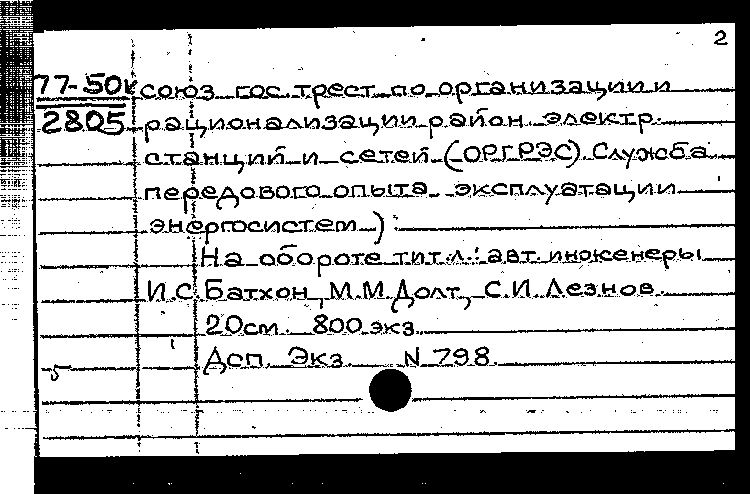 2
77-50к союз гос. трест по организации и
2805 рационализации район. электр.
станций и сетей (ОРГРЭС). Служба
передового опыта эксплуатации
энергосистем).
На обороте тит. л.: авт. инженеры
И.С. Батхон, М.М. Долт, С.И. Лезнов.
20см. 800 экз.
Дсп. Экз. N 798.